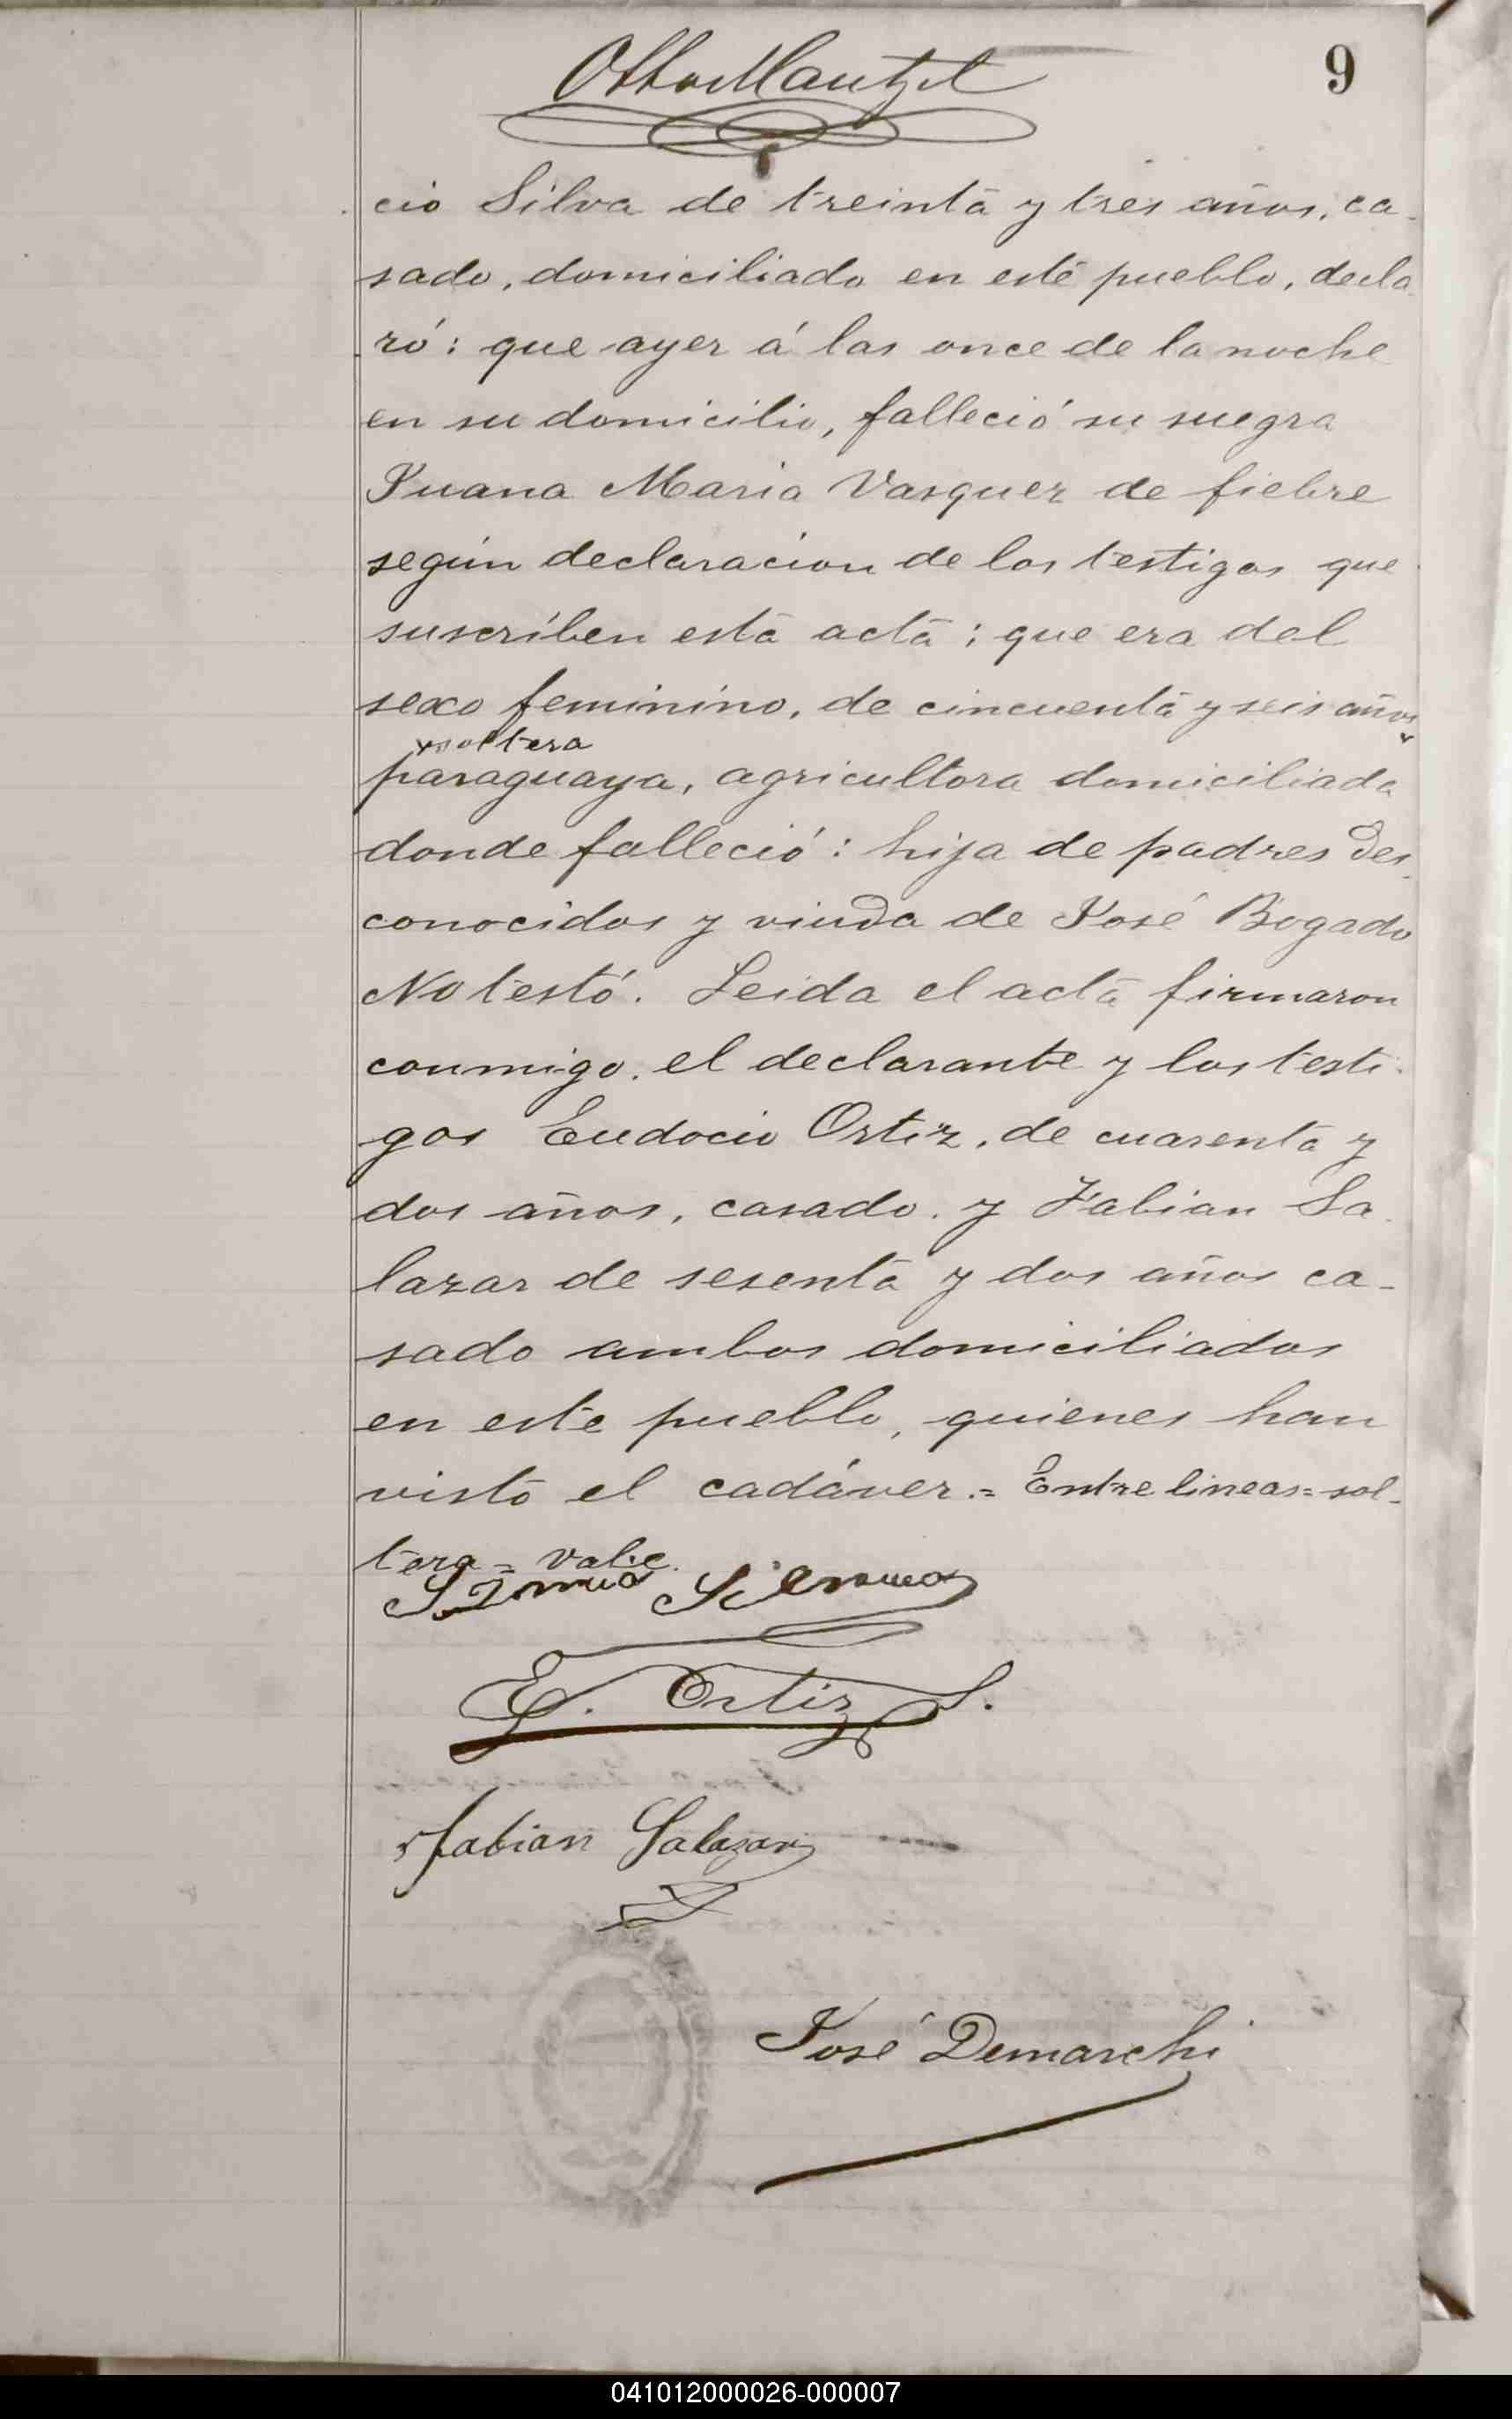 Otto Mantzel
9
cio Silva de treinta y tres años, ca-
sado, domiciliado en este pueblo, decla
ró: que ayer á las once de la noche
en su domicilio, falleció su suegra
Juana Maria Vasquez de fiebre
según declaracion de los testigos que
suscriben esta acta; que era del
sexo feminino, de cincuenta y seis años
soltera
paraguaya, agricultora domiciliada
donde falleció: hija de padres des-
conocidos y viuda de José Bogado
No testó. Leida el acta firmaron
conmigo, el declarante y los testi-
gos Eudocio Ortiz, de cuarenta y
dos años, casado, y Fabian Sa-
lazar de sesenta y dos años ca-
sado ambos domiciliados
en este pueblo, quienes han
visto el cadáver.= Entre lineas= sol-
tera= vale.
E. Ortiz S.
Fabian Salazar
José Demarchi
041012000026-000007